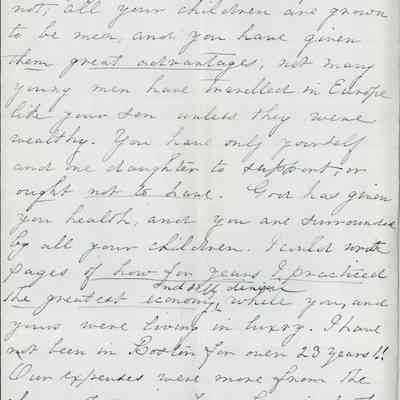 not, all your children are grown
to be men, and you have given
them great advantages, not many
young men have travelled in Europe
like your son unless they were
wealthy. You have only yourself
and one daughter to support, or
ought not to have. God has given
you health, and you are surrounded
by all your children. I could write
pages of how for years I practiced
and self denial
the greatest economy, while you, and
yours were living in luxry. I have
not been in Boston for over 23 years!!
Our expenses were more from the